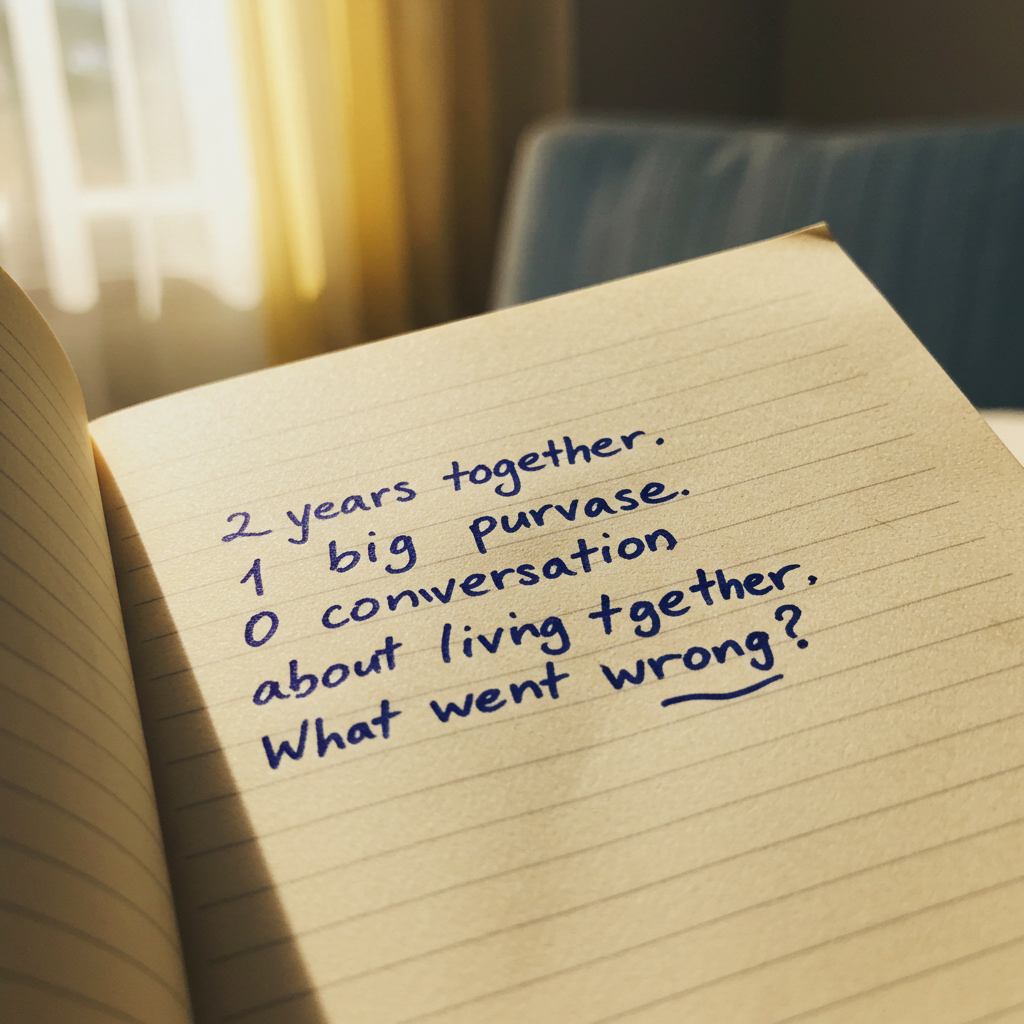 2 years together.
1 big purvase.
0 conversation
about living tgether.
What went wrong?